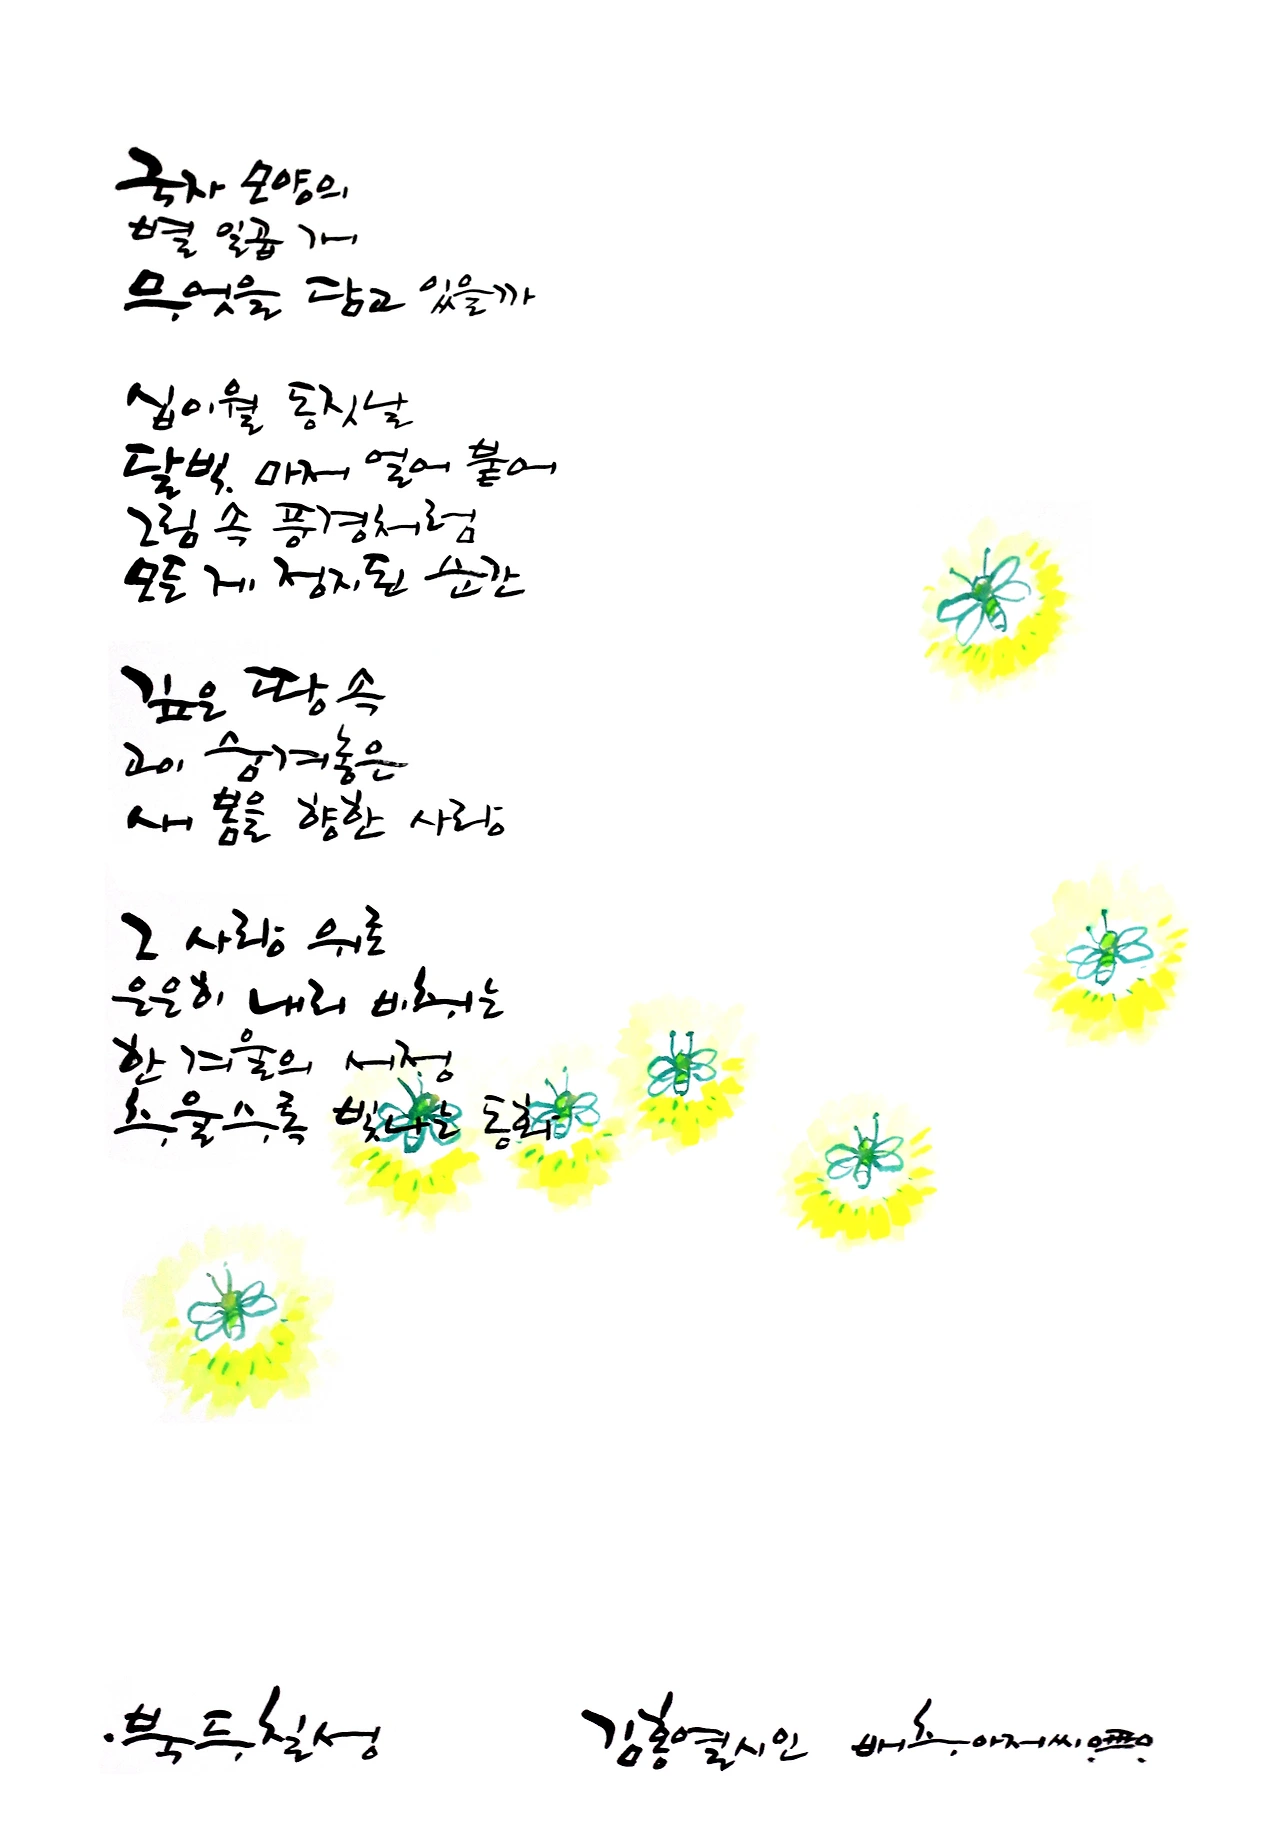 국자 모양의
별 일곱 개
무엇을 담고 있을까
십이월 동짓날
달빛 마저 얼어 붙어
그림 속 풍경처럼
모든 게 정지된 순간
깊은 땅 속
고이 숨겨놓은
새 봄을 향한 사랑
그 사랑 위로
은은히 내려 비추는
한 겨울의 서정
추울수록 빛나는 동화
북두칠성
김홍열시인 배추아저씨